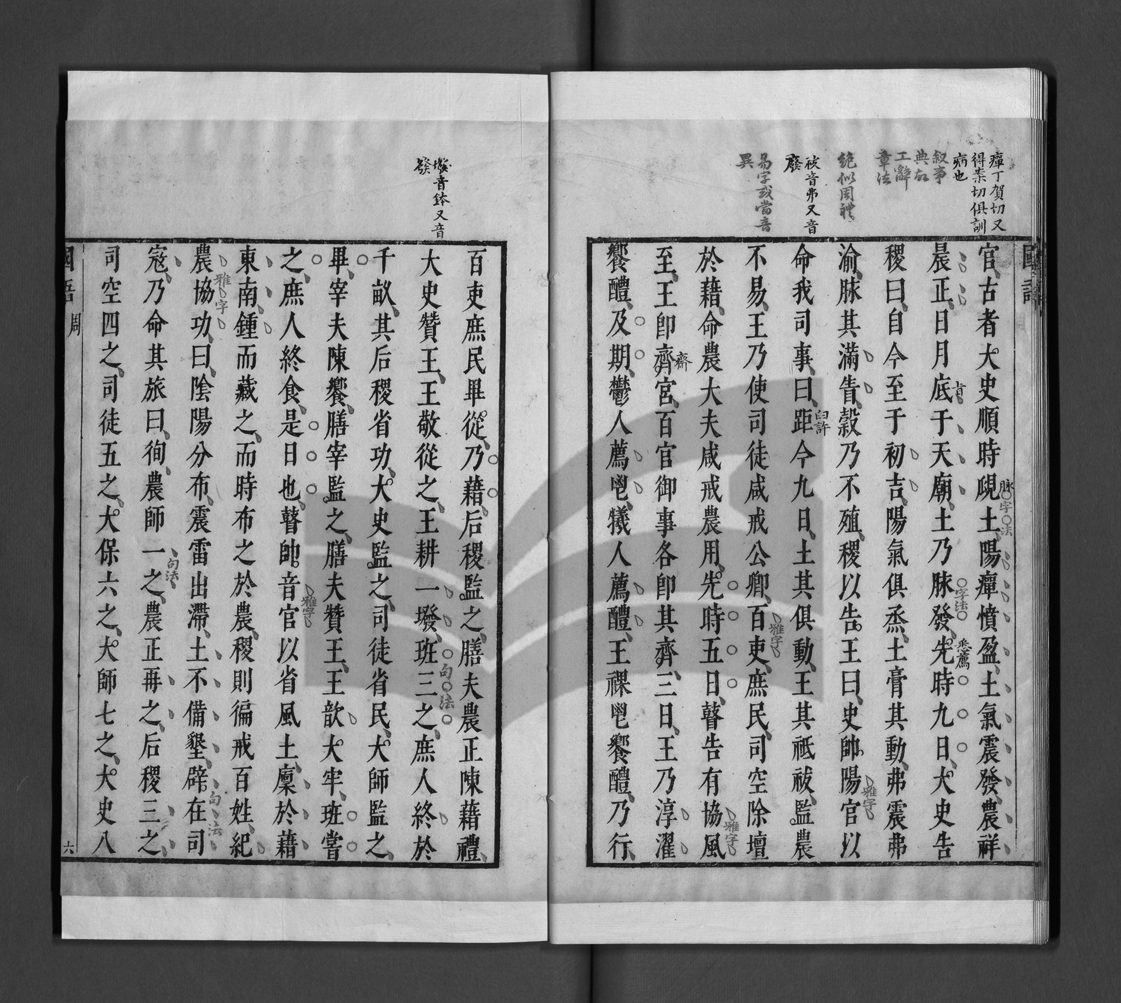 瘴丁賀切又
得案切俱訓
病也
叙事
典古
工辭
章法
絶似周禮
祓音弗又音
廢
易字或當音
異
官、古者、太史順時覛土、陽癉憤盈、土氣震發、農祥
晨正、日月底于天廟、土乃脉發、先時九日、太史告
稷曰、自今至于初吉、陽氣俱烝、土膏其動、弗震弗
渝、脉其滿眚、穀乃不殖、稷以告、王曰、史帥陽官以
命我司事、曰、距今九日、土其俱動、王其祗祓、監農
不易、王乃使司徒咸戒公卿、百吏、庶民、司空除壇
於藉、命農大夫咸戒農用、先時五日、瞽告有協風
至、王卽齊宮、百官御事各卽其齊、三日、王乃淳濯
饗醴、及期、鬱人薦鬯、犧人薦醴、王祼鬯饗醴、乃行、
脉字法
肯
字法
悉薦
雅字
臼許
雅字
雅字
齋
國語
墢音鉢又音
發
百吏庶民畢從、乃藉、后稷監之、膳夫農正陳藉禮、
太史贊王、王敬從之、王耕一墢、班三之、庶人終於
千畝、其后稷省功、太史監之、司徒省民、太師監之、
畢、宰夫陳饗、膳宰監之、膳夫贊王、王歆太牢、班嘗
之、庶人終食、是日也、瞽帥、音官以省風土、廩於藉
東南、鍾而藏之、而時布之於農、稷則徧戒百姓、紀
農協功、曰、陰陽分布、震雷出滯、土不備墾、辟在司
寇、乃命其旅曰、徇、農師一之、農正再之、后稷三之、
司空四之、司徒五之、太保六之、太師七之、太史八
句法
雅字
雅字
句法
句法
國語 周 六